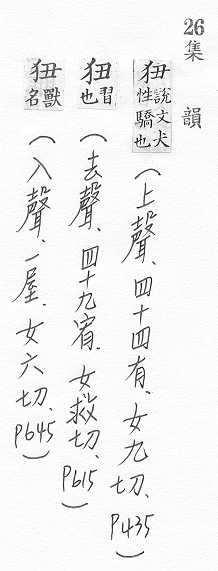 26 集韻
狃 說文犬性驕也（上聲、四十四有、女九切、P435）
狃 習也（去聲、四十九宥、女救切、P615）
狃 獸名（入聲、一屋、女六切、P645）